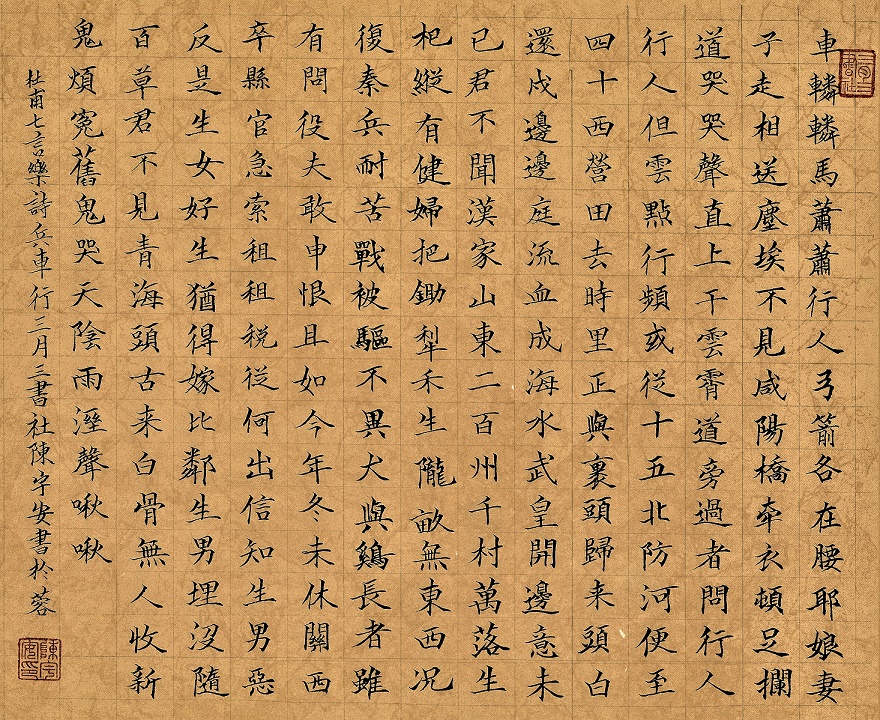 車轔轔馬蕭蕭行人弓箭各在腰耶娘妻
子走相送塵埃不見咸陽橋牽衣頓足攔
道哭哭聲直上干雲霄道旁過者問行人
行人但雲點行頻或從十五北防河便至
四十西營田去時里正與裹頭歸来頭白
還戍邊邊庭流血成海水武皇開邊意未
已君不聞漢家山東二百州千村萬落生
杷縱有健婦把鋤犁禾生隴畝無東西况
復秦兵耐苦戰被驅不異犬與鷄長者雖
有問役夫敢申恨且如今年冬未休關西
卒縣官急索租租税從何出信知生男惡
反是生女好生猶得嫁比鄰生男埋没隨
百草君不見青海頭古来白骨無人收新
鬼煩冤舊鬼哭天陰雨溼聲啾啾
杜甫七言樂詩兵車行三月三書社陳宇安書於蓉